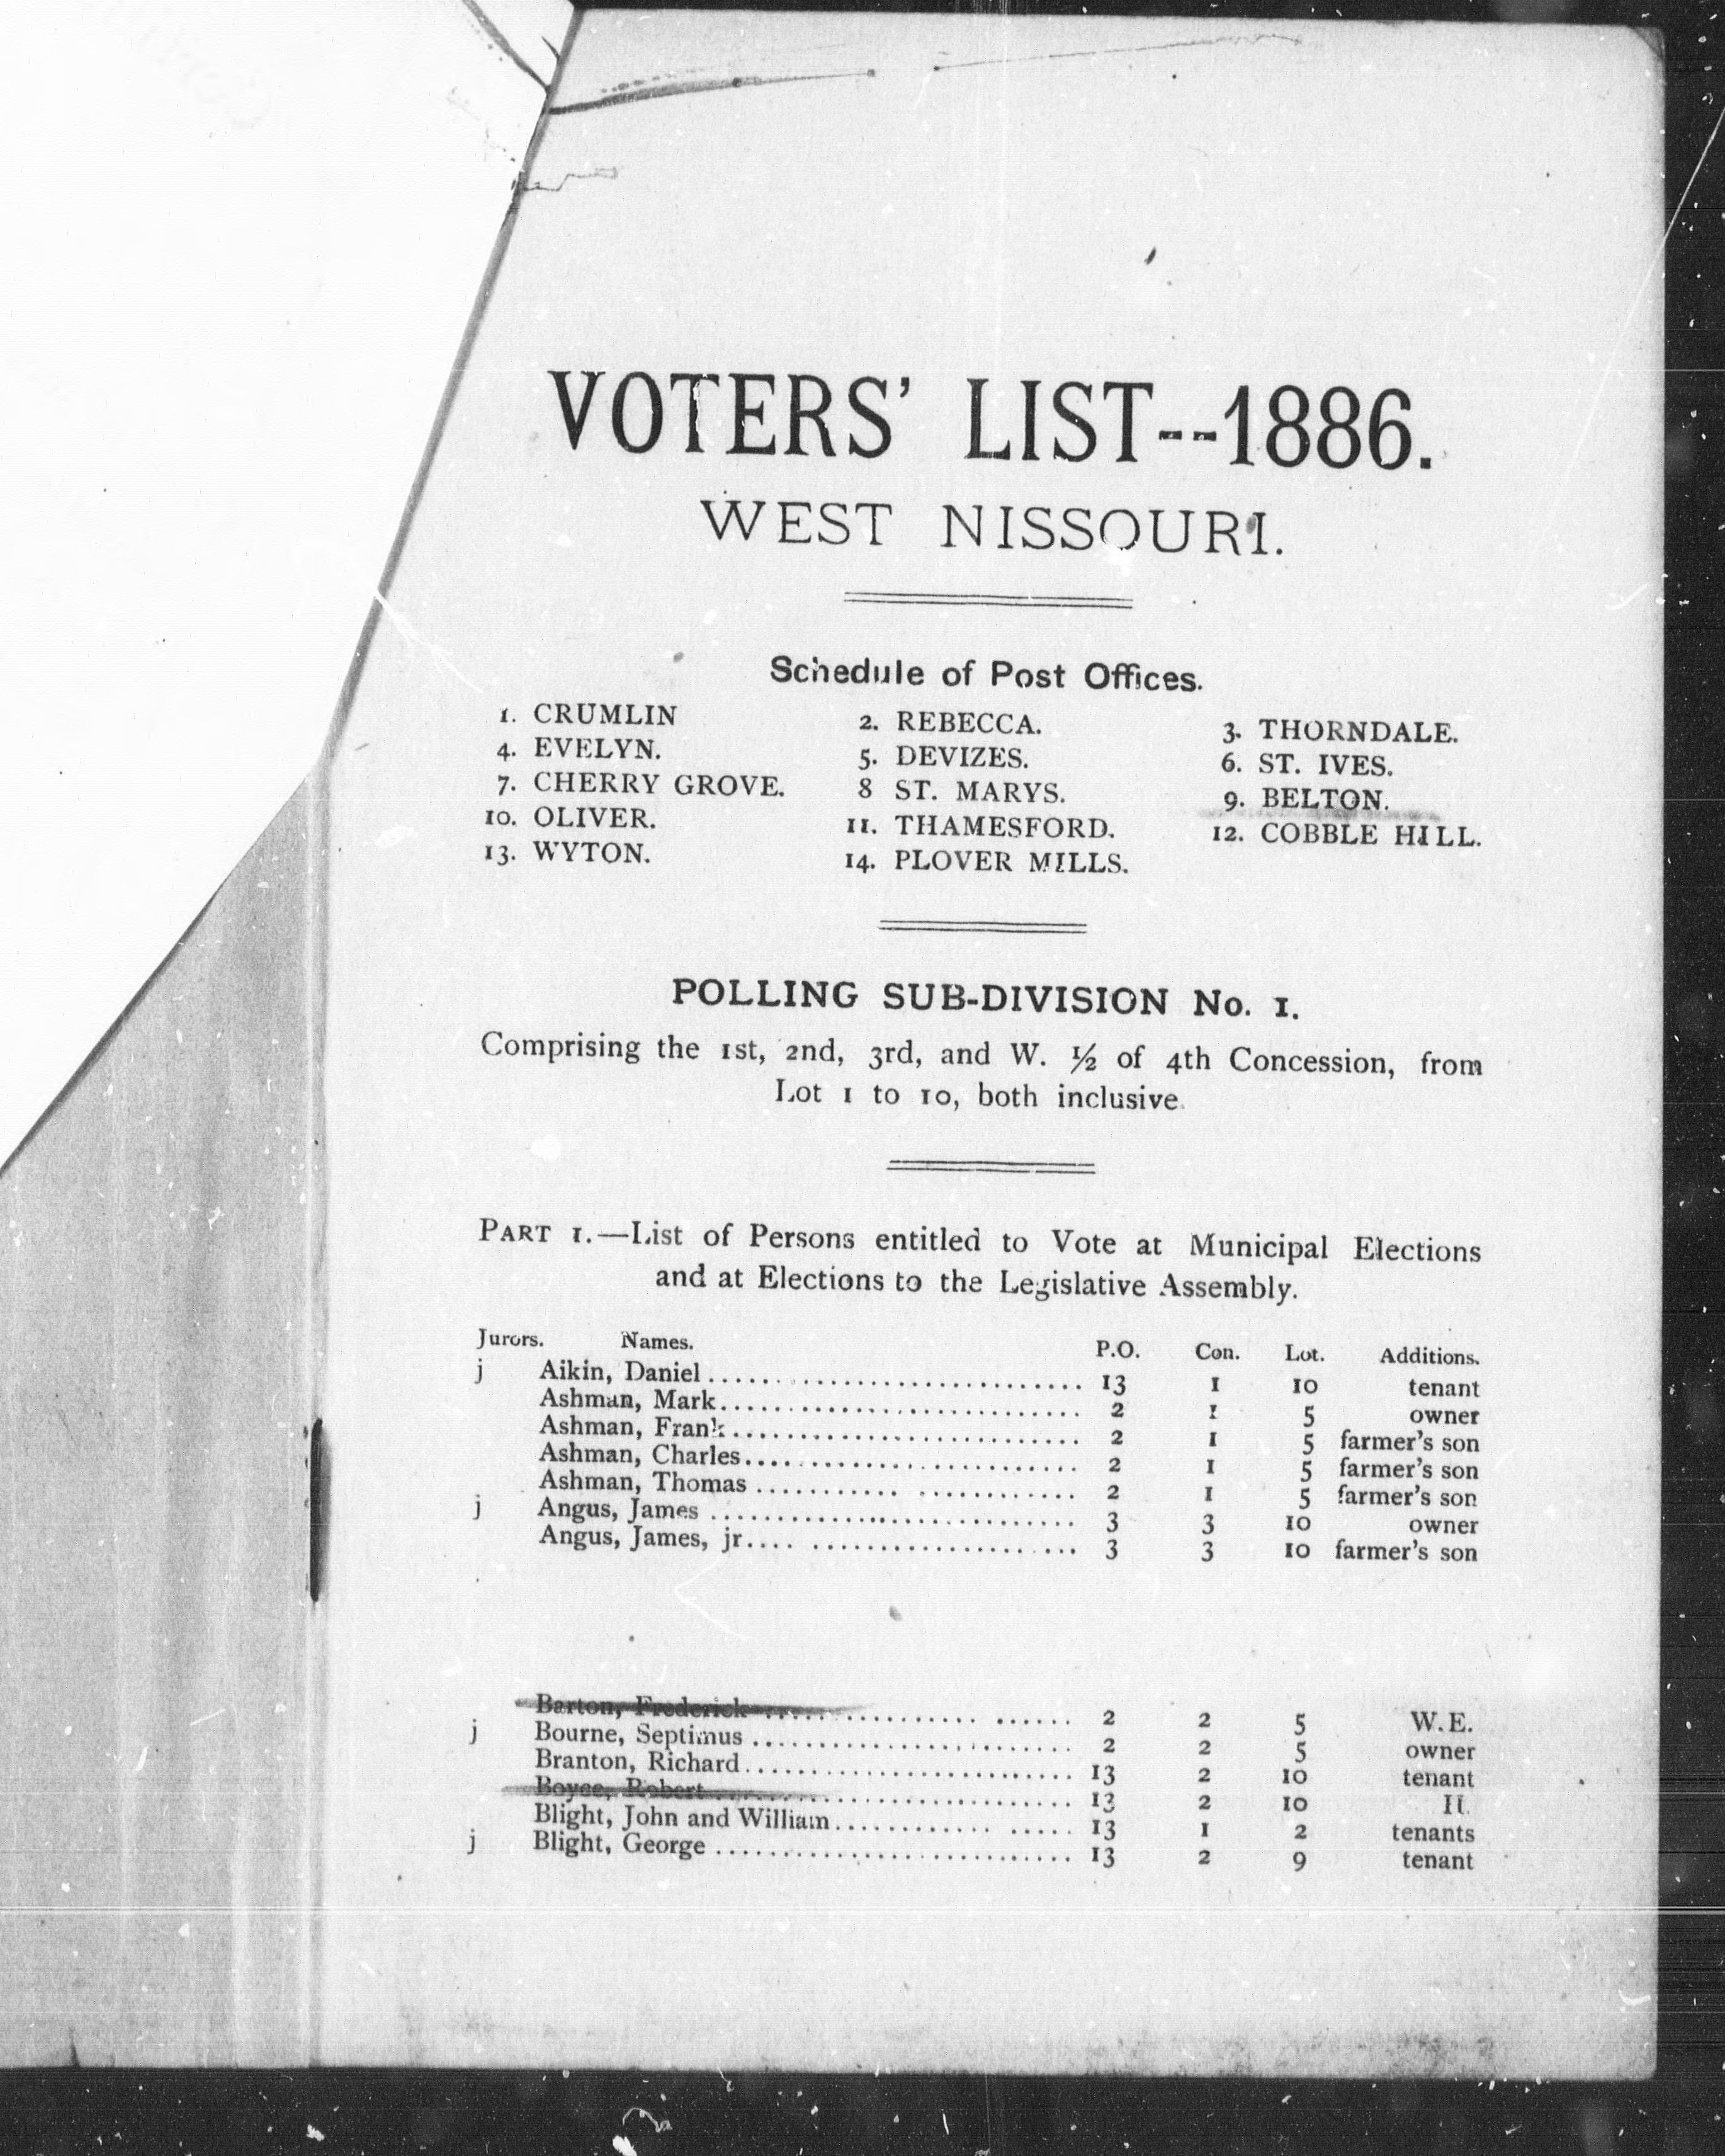 VOTERS' LIST--1886.
WEST NISSOURI.
Schedule of Post Offices.
1. CRUMLIN 2. REBECCA. 3. THORNDALE.
4. EVELYN. 5. DEVIZES. 6. ST. IVES.
7. CHERRY GROVE. 8 ST. MARYS. 9. BELTON.
10. OLIVER. 11. THAMESFORD. 12. COBBLE HILL.
13. WYTON. 14. PLOVER MILLS.
POLLING SUB-DIVISION No. 1.
Comprising the 1st, 2nd, 3rd, and W. ½ of 4th Concession, from
Lot 1 to 10, both inclusive.
PART 1.—List of Persons entitled to Vote at Municipal Elections
and at Elections to the Legislative Assembly.
Jurors. Names. P.O. Con. Lot. Additions.
j Aikin, Daniel 13 1 10 tenant
Ashman, Mark 2 1 5 owner
Ashman, Frank 2 1 5 farmer's son
Ashman, Charles 2 1 5 farmer's son
Ashman, Thomas 2 1 5 farmer's son
j Angus, James 3 3 10 owner
Angus, James, jr 3 3 10 farmer's son
Barton, Frederick 2 2 5 W.E.
j Bourne, Septimus 2 2 5 owner
Branton, Richard 13 2 10 tenant
Boyce, Robert 13 2 10
Blight, John and William 13 1 2 tenants
j Blight, George 13 2 9 tenant